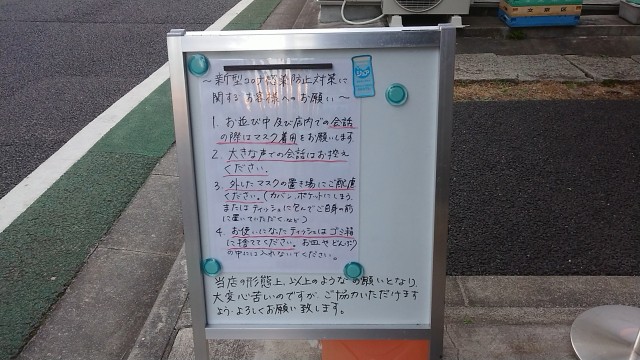 ～新型コロナ感染防止対策に
関するお客様へのお願い～
1. お並び中及び店内での会話
の際はマスク着用をお願いします
2. 大きな声での会話はお控え
ください。
3. 外したマスクの置き場にご配慮
ください。(カバン、ポケットにしまう、
またはティッシュに包んでご自身の前
に置いていただくなど)
4. お使いになったティッシュはゴミ箱
に捨ててください。お皿やどんぶり
の中には入れないでください。
当店の形態上、以上のようなお願いとなり、
大変心苦しいのですが、ご協力いただけます
よう、よろしくお願い致します。